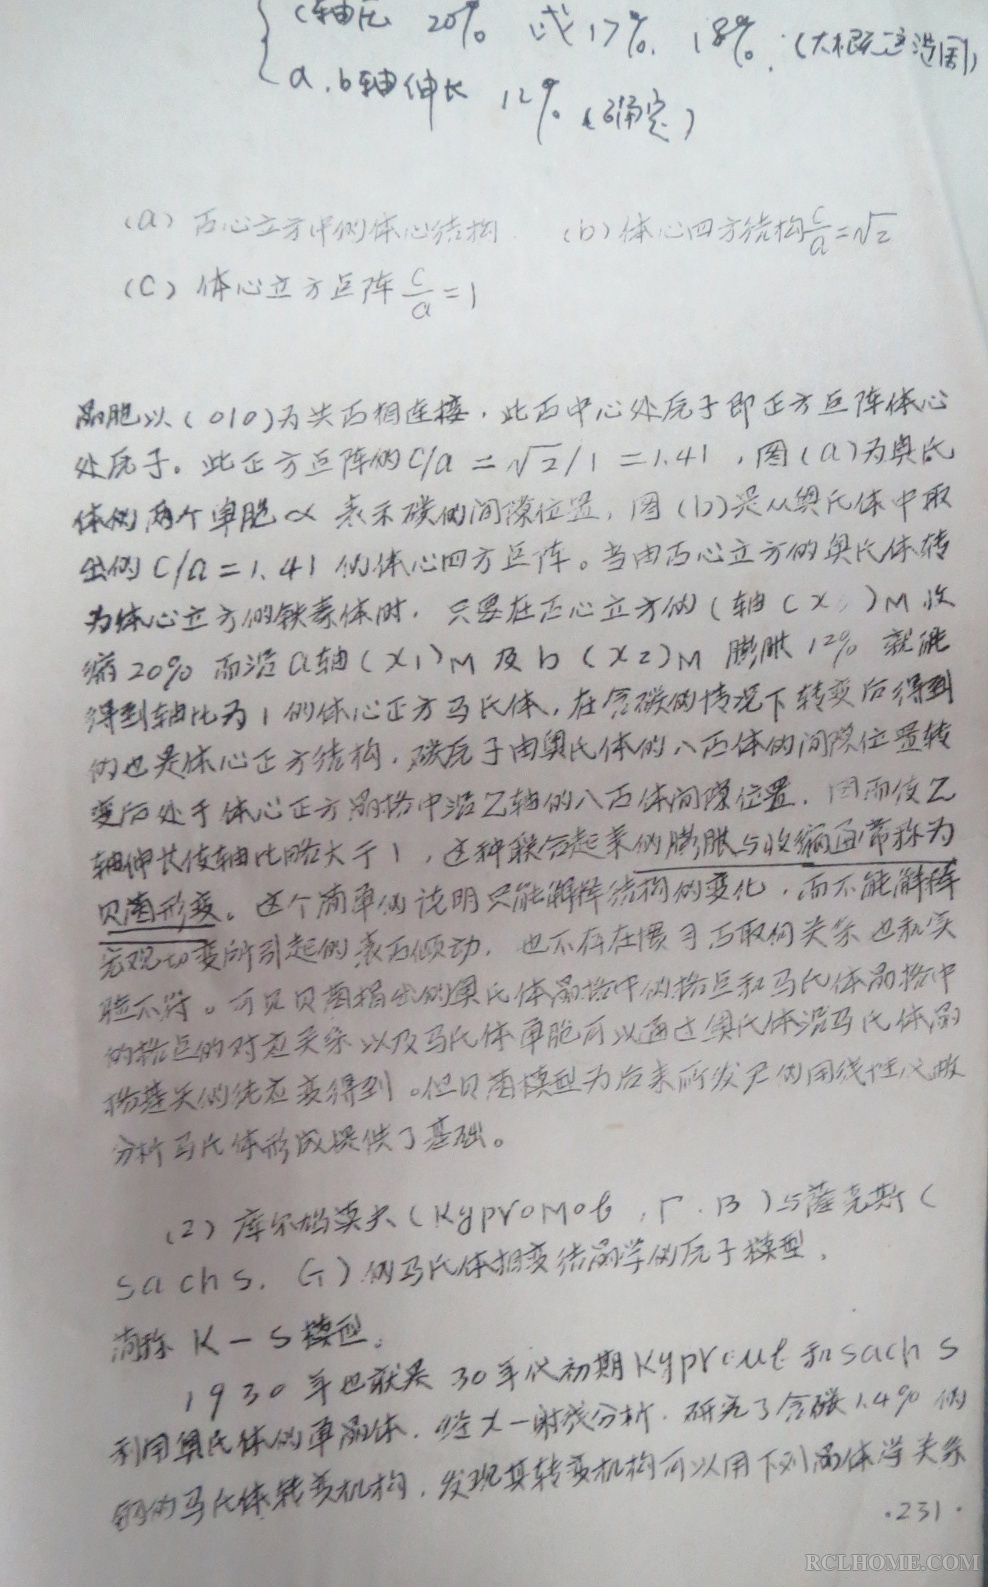 c轴压 20% 或17%、18%.(大概在这范围)
a、b轴伸长 12%(确定)
(a) 面心立方中的体心结构. (b)体心四方结构c/a=√2
(C) 体心立方点阵c/a=1
晶胞以(010)为共面相连接,此面中心处原子即正方点阵体心
处原子。此正方点阵的C/a=√2/1=1.41,图(a)为奥氏
体的两个单胞 × 表示碳的间隙位置,图(b)是从奥氏体中取
出的C/a=1.41的体心四方点阵。当由面心立方的奥氏体转
为体心立方的铁素体时,只要在面心立方的(轴C X3)M收
缩20%而沿a轴(X1)M及b(X2)M膨胀12%就能
得到轴比为1的体心正方马氏体,在含碳的情况下转变后得到
的也是体心正方结构,碳原子由奥氏体的八面体的间隙位置转
变后处于体心正方晶格中沿Z轴的八面体间隙位置,因而使Z
轴伸长使轴比略大于1,这种联合起来的膨胀与收缩通常称为
贝茵形变。这个简单的说明只能解释结构的变化,而不能解释
宏观切变所引起的表面倾动,也不存在惯习面取向关系也和实
验不符。可见贝茵指出的奥氏体晶格中的格点和马氏体晶格中
的格点的对应关系以及马氏体单胞可以通过奥氏体沿马氏体晶
格基矢的纯应变得到。但贝茵模型为后来所发展的用线性代数
分析马氏体形成提供了基础。
(2)库尔鸠莫夫(Kypromob,Г.B)与萨克斯(
sachs.G)的马氏体相变结晶学的原子模型,
简称K-S模型。
1930年也就是30年代初期Kyprout和sachs
利用奥氏体的单晶体,经X-射线分析,研究了含碳1.4%的
钢的马氏体转变机构,发现其转变机构可以用下列晶体学关系
·231·
RCLHOME.COM